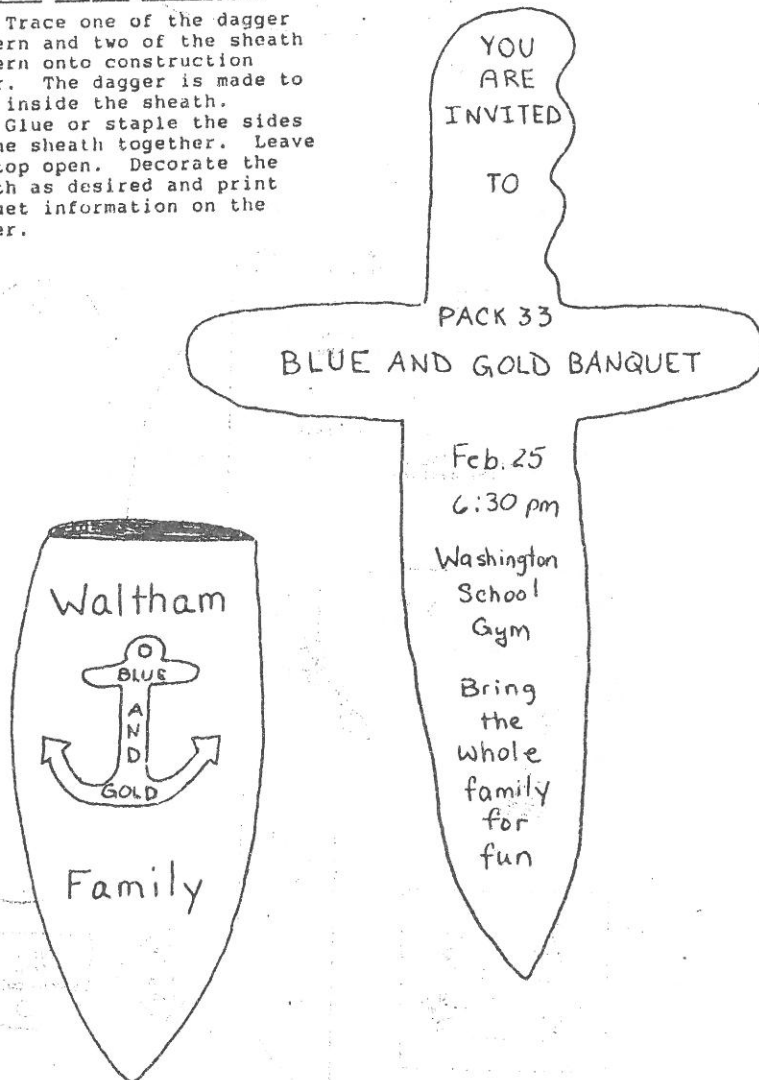 Trace one of the dagger
ern and two of the sheath
ern onto construction
r. The dagger is made to
inside the sheath.
Glue or staple the sides
he sheath together. Leave
top open. Decorate the
th as desired and print
uet information on the
er.
YOU
ARE
INVITED
TO
PACK 33
BLUE AND GOLD BANQUET
Feb. 25
6:30 pm
Washington
School
Gym
Bring
the
whole
family
for
fun
Waltham
BLUE
A
N
D
GOLD
Family